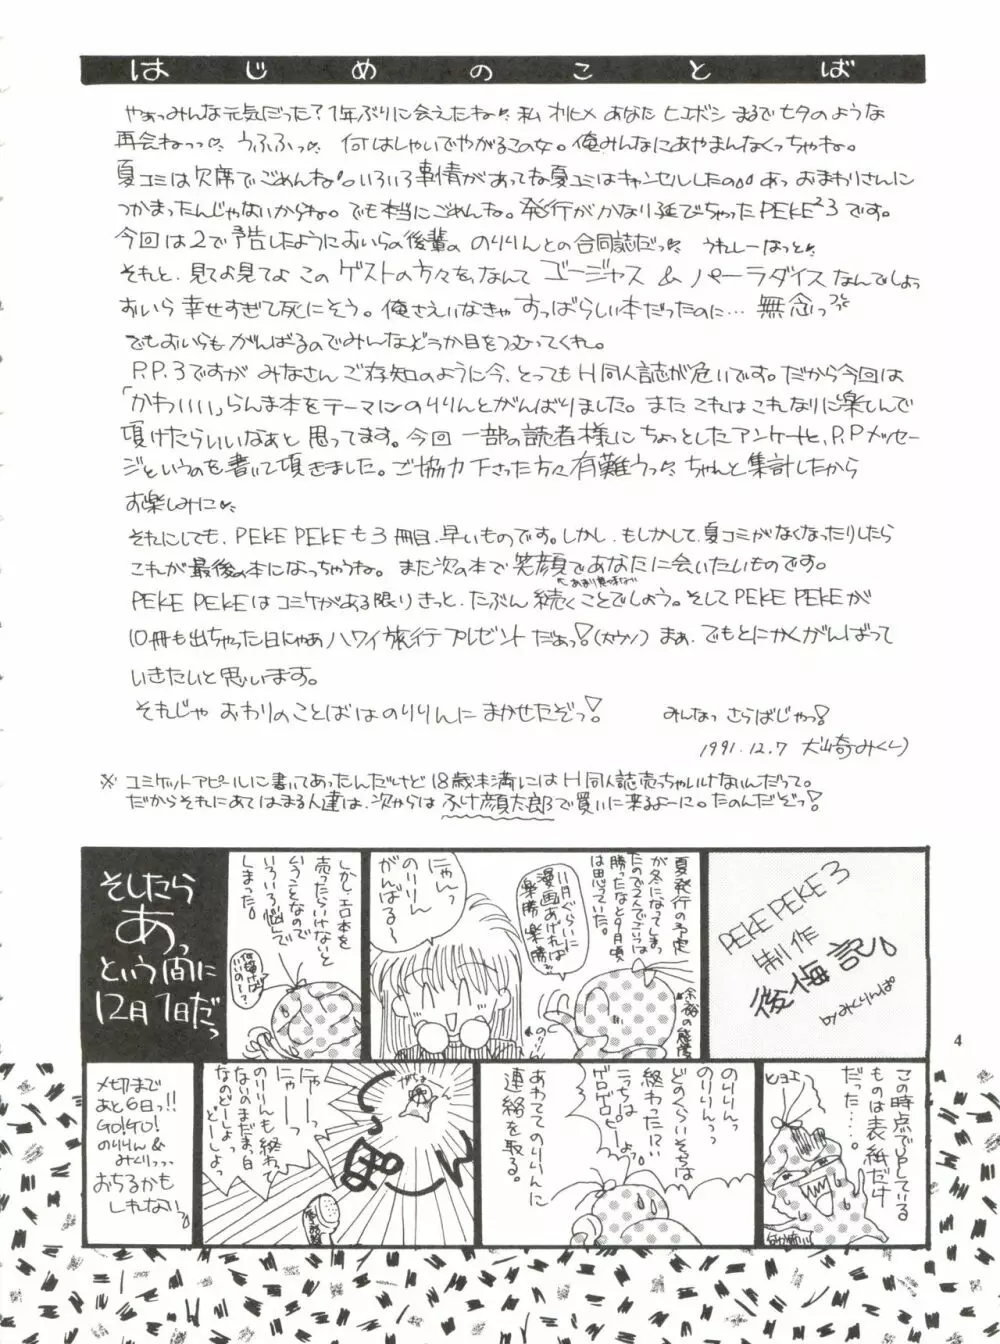 はじめのことば
やぁっみんな元気だった?1年ぶりに会えたね 私 オリヒメ あなた ヒコボシ まるで七夕のような
再会ねっっ うふふっ 何はしゃいでやがるこの女。俺みんなにあやまんなくっちゃね。
夏コミは欠席でごめんね。いろいろ事情があってな夏コミはキャンセルしたの あっ おまわりさんに
つかまったんじゃないからね。でも本当にごめんね。発行がかなり延びちゃったPEKE²3です。
今回は2で予告したようにおいらの後輩の のりりんとの合同誌だっ うれしーはっと
それと、見てよ見てよ このゲストの方々を、なんてゴージャス & パーラダイスなんでしょっ
おいら 幸せすぎて死にそう。俺さえいなきゃ すっばらしい本だったのに… 無念っ
でもおいらも がんばるのでみんなどうか目をつむってくれ。
P.P.3ですが みなさん ご存知のように今、とってもH同人誌が危いです。だから今回は
「かわいい」らんま本をテーマにのりりんとがんばりました。また これはこれなりに楽しんで
頂けたらいいなぁと 思ってます。今回 一部の読者様に ちょっとしたアンケートと、P.Pメッセー
ジというのを書いて頂きました。ご協力下さった方々有難うっ ちゃんと集計したから
お楽しみに
それにしても、PEKE PEKEも3冊目、早いものです。しかし、もしかして、夏コミがなくなったりしたら
これが最後の本になっちゃうね。また次の本で笑顔であなたに会いたいものです。
あまり意味ない
PEKE PEKEはコミケがある限りきっと、たぶん続くことでしょう。そしてPEKE PEKEが
10冊も出ちゃった日にゃあ ハワイ旅行プレゼントだぁっ!(大ウソ) まぁ、でもとにかくがんばって
いきたいと思います。
それじゃ おわりのことばはのりりんに まかせたぞっ! みんなっ さらばじゃっ!
1991.12.7 犬崎みくり
※ コミケットアピールに書いてあったんだけど 18歳未満にはH同人誌売っちゃいけないんだって。
だからそれにあてはまる人達は、次からは ふけ顔太郎で買いに来るよーに。たのんだぞっ!
PEKE PEKE 3
制作
後悔記
by みくりんぱ
夏発行の予定
が冬になってしまっ
勝ったなと9月頃
は思っていた。
11月ぐらいに
漫画あげれば
楽勝 楽勝
余裕の態度
にゃんっ
のりりん
がんばる〜
のりりん
しかし、エロ本を
売ったらいけないと
いうことなので
いろいろ悩んで
しまった。
何描けば
いいのー!
そしたら
あっ
という間に
12月1日だっ
4
この時点でUPしている
ものは表紙だけ
だった……。
ヒョエ
のりりんっ
のりりんっ
どのくらいそっちは
終わったにい
こっちは
ゲロゲロピーよっ
あわててのりりんに
連絡を取る。
にゃーっ
にゃーっ
のりりんも終わって
ないのまだまっ白
なのどーしよっ
どーしよっ
〆切まで
あと6日っ!!
GO!GO!
のりりん &
みくりっっ
おちるかも
しれない